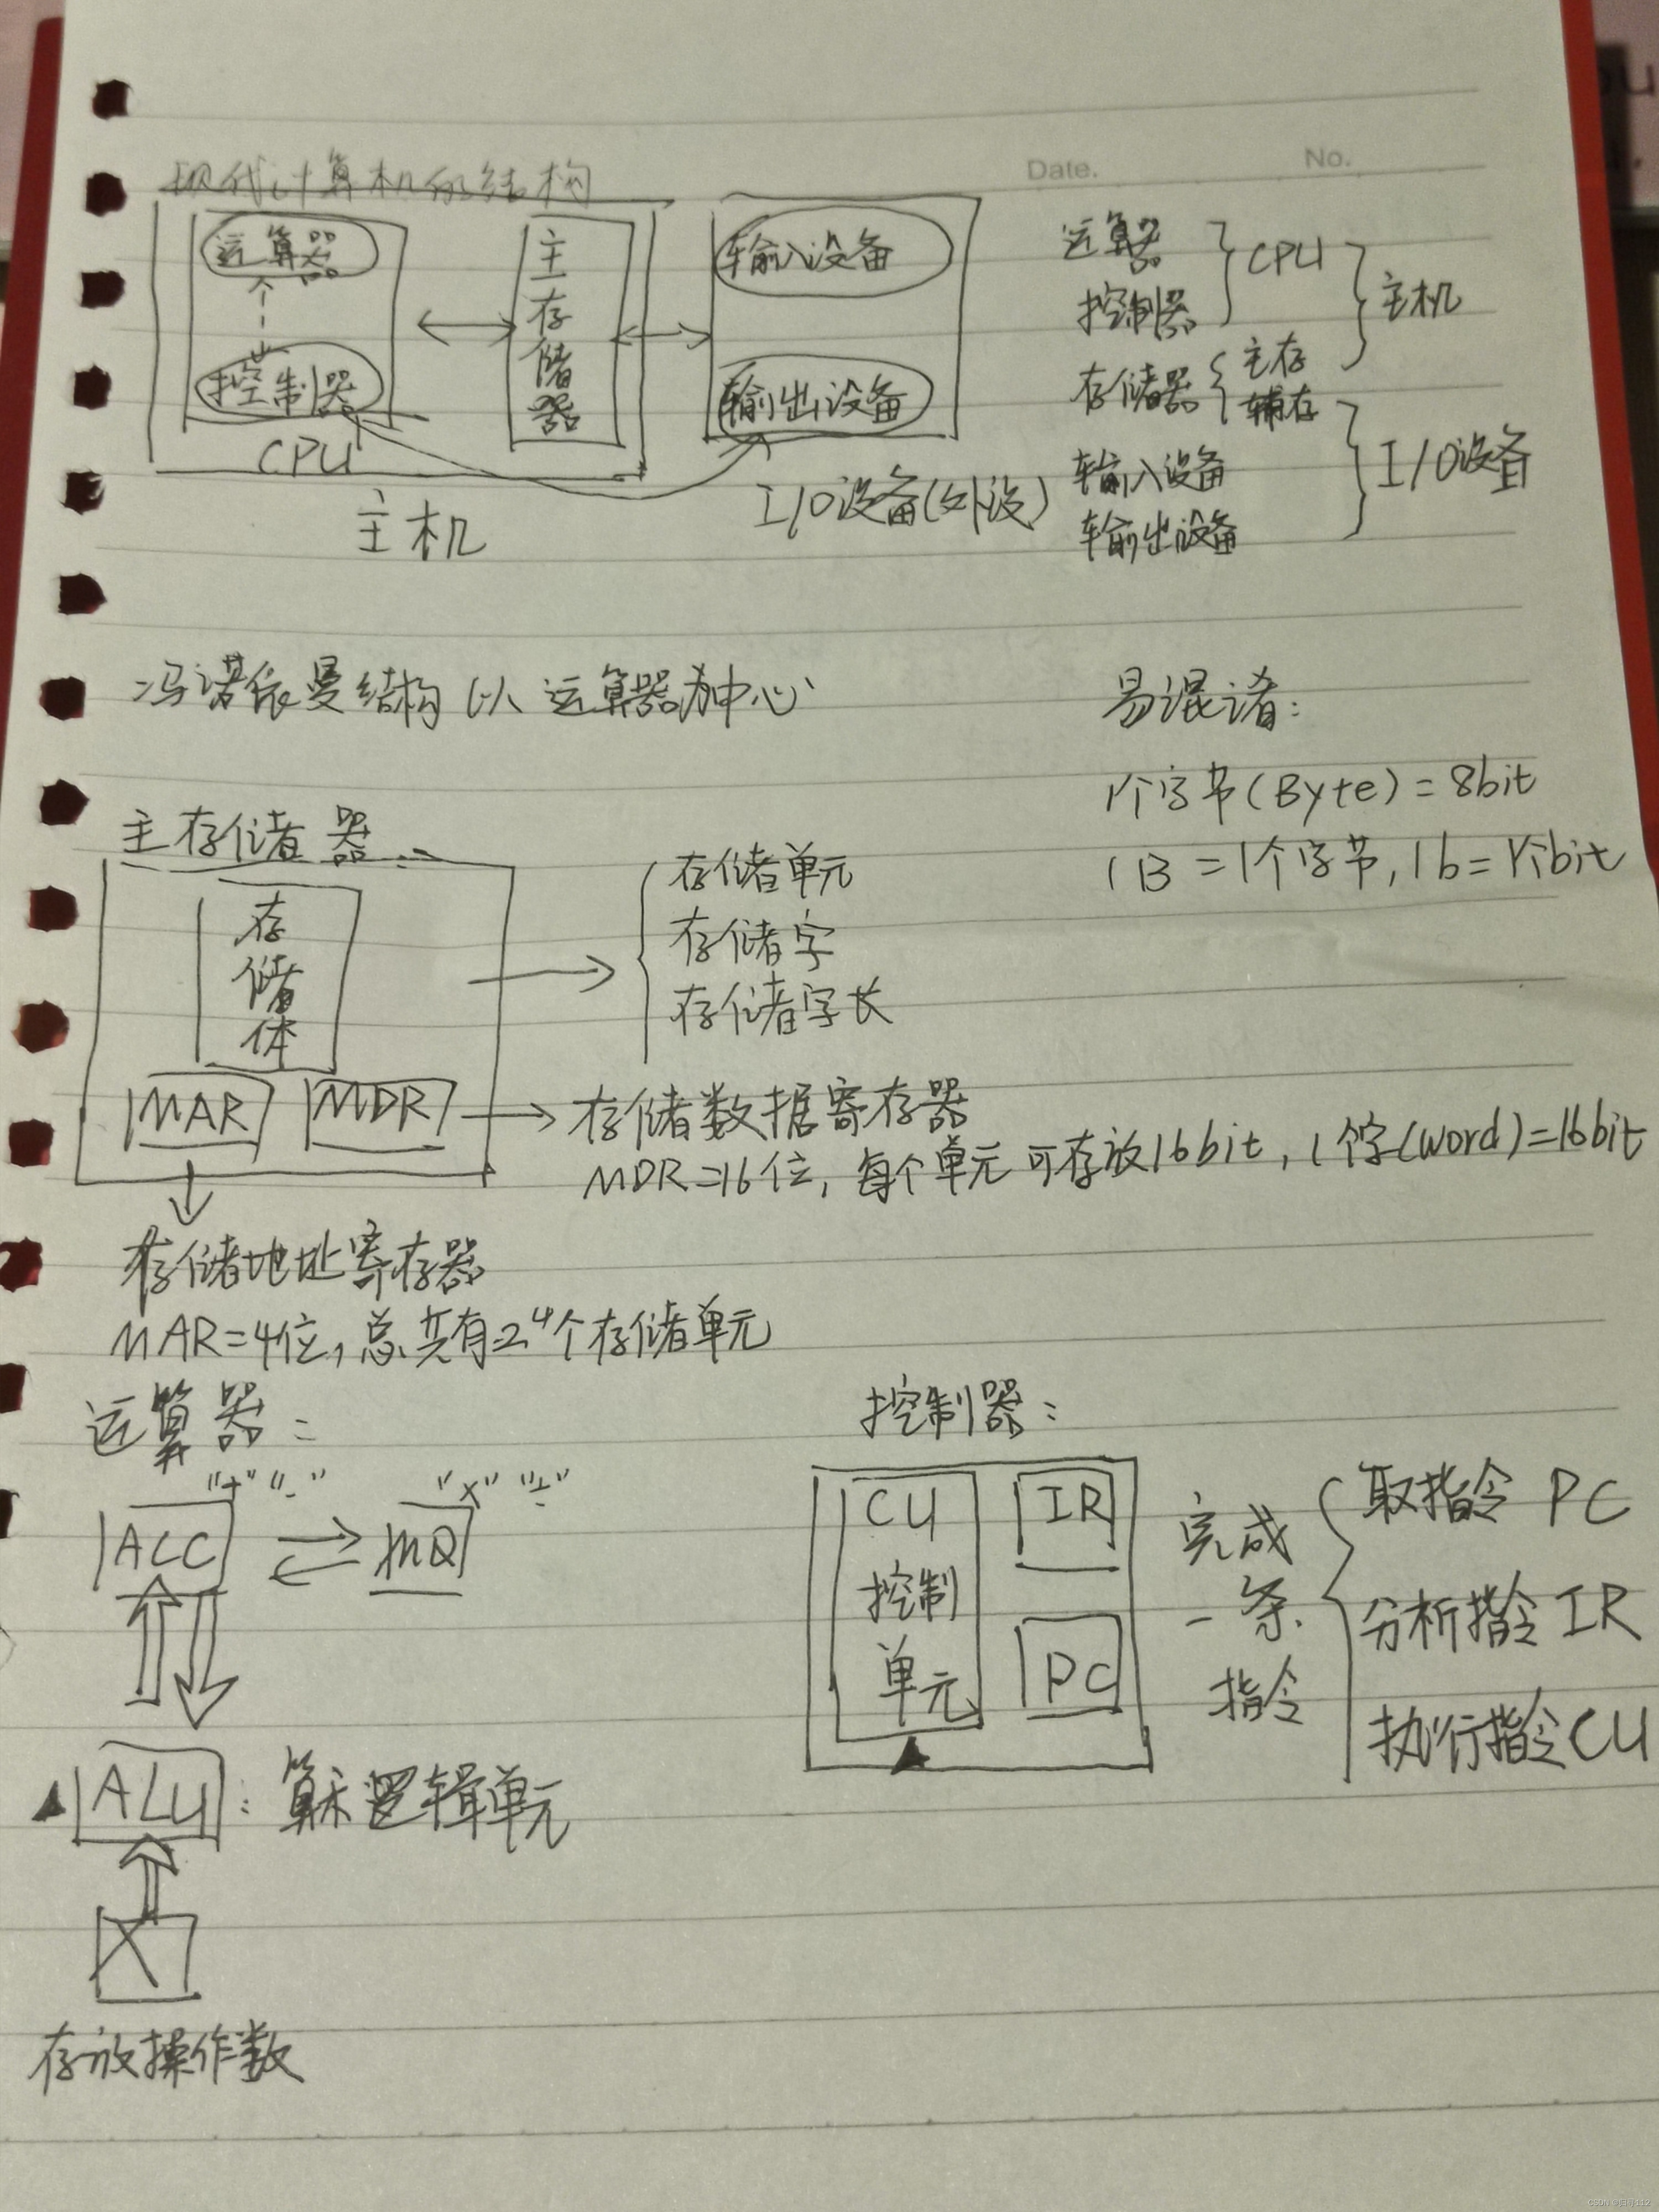 Date.
No.
现代计算机的结构
运算器
控制器
CPU
主存储器
主机
输入设备
输出设备
I/O设备(外设)
运算器
控制器
CPU
存储器
主存
辅存
主机
输入设备
输出设备
I/O设备
冯诺依曼结构以运算器为中心
易混淆:
1个字节(Byte)=8bit
1B=1个字节,1b=1个bit
主存储器:
存储体
MAR
MDR
存储单元
存储字
存储字长
存储数据寄存器
MDR=16位,每个单元可存放16bit,1个字(word)=16bit
存储地址寄存器
MAR=4位,总共有2⁴个存储单元
运算器:
"+" "-"
"×" "÷"
ACC
MQ
ALU:算术逻辑单元
X
存放操作数
控制器:
CU
控制
单元
IR
PC
完成
一条
指令
取指令 PC
分析指令 IR
执行指令 CU